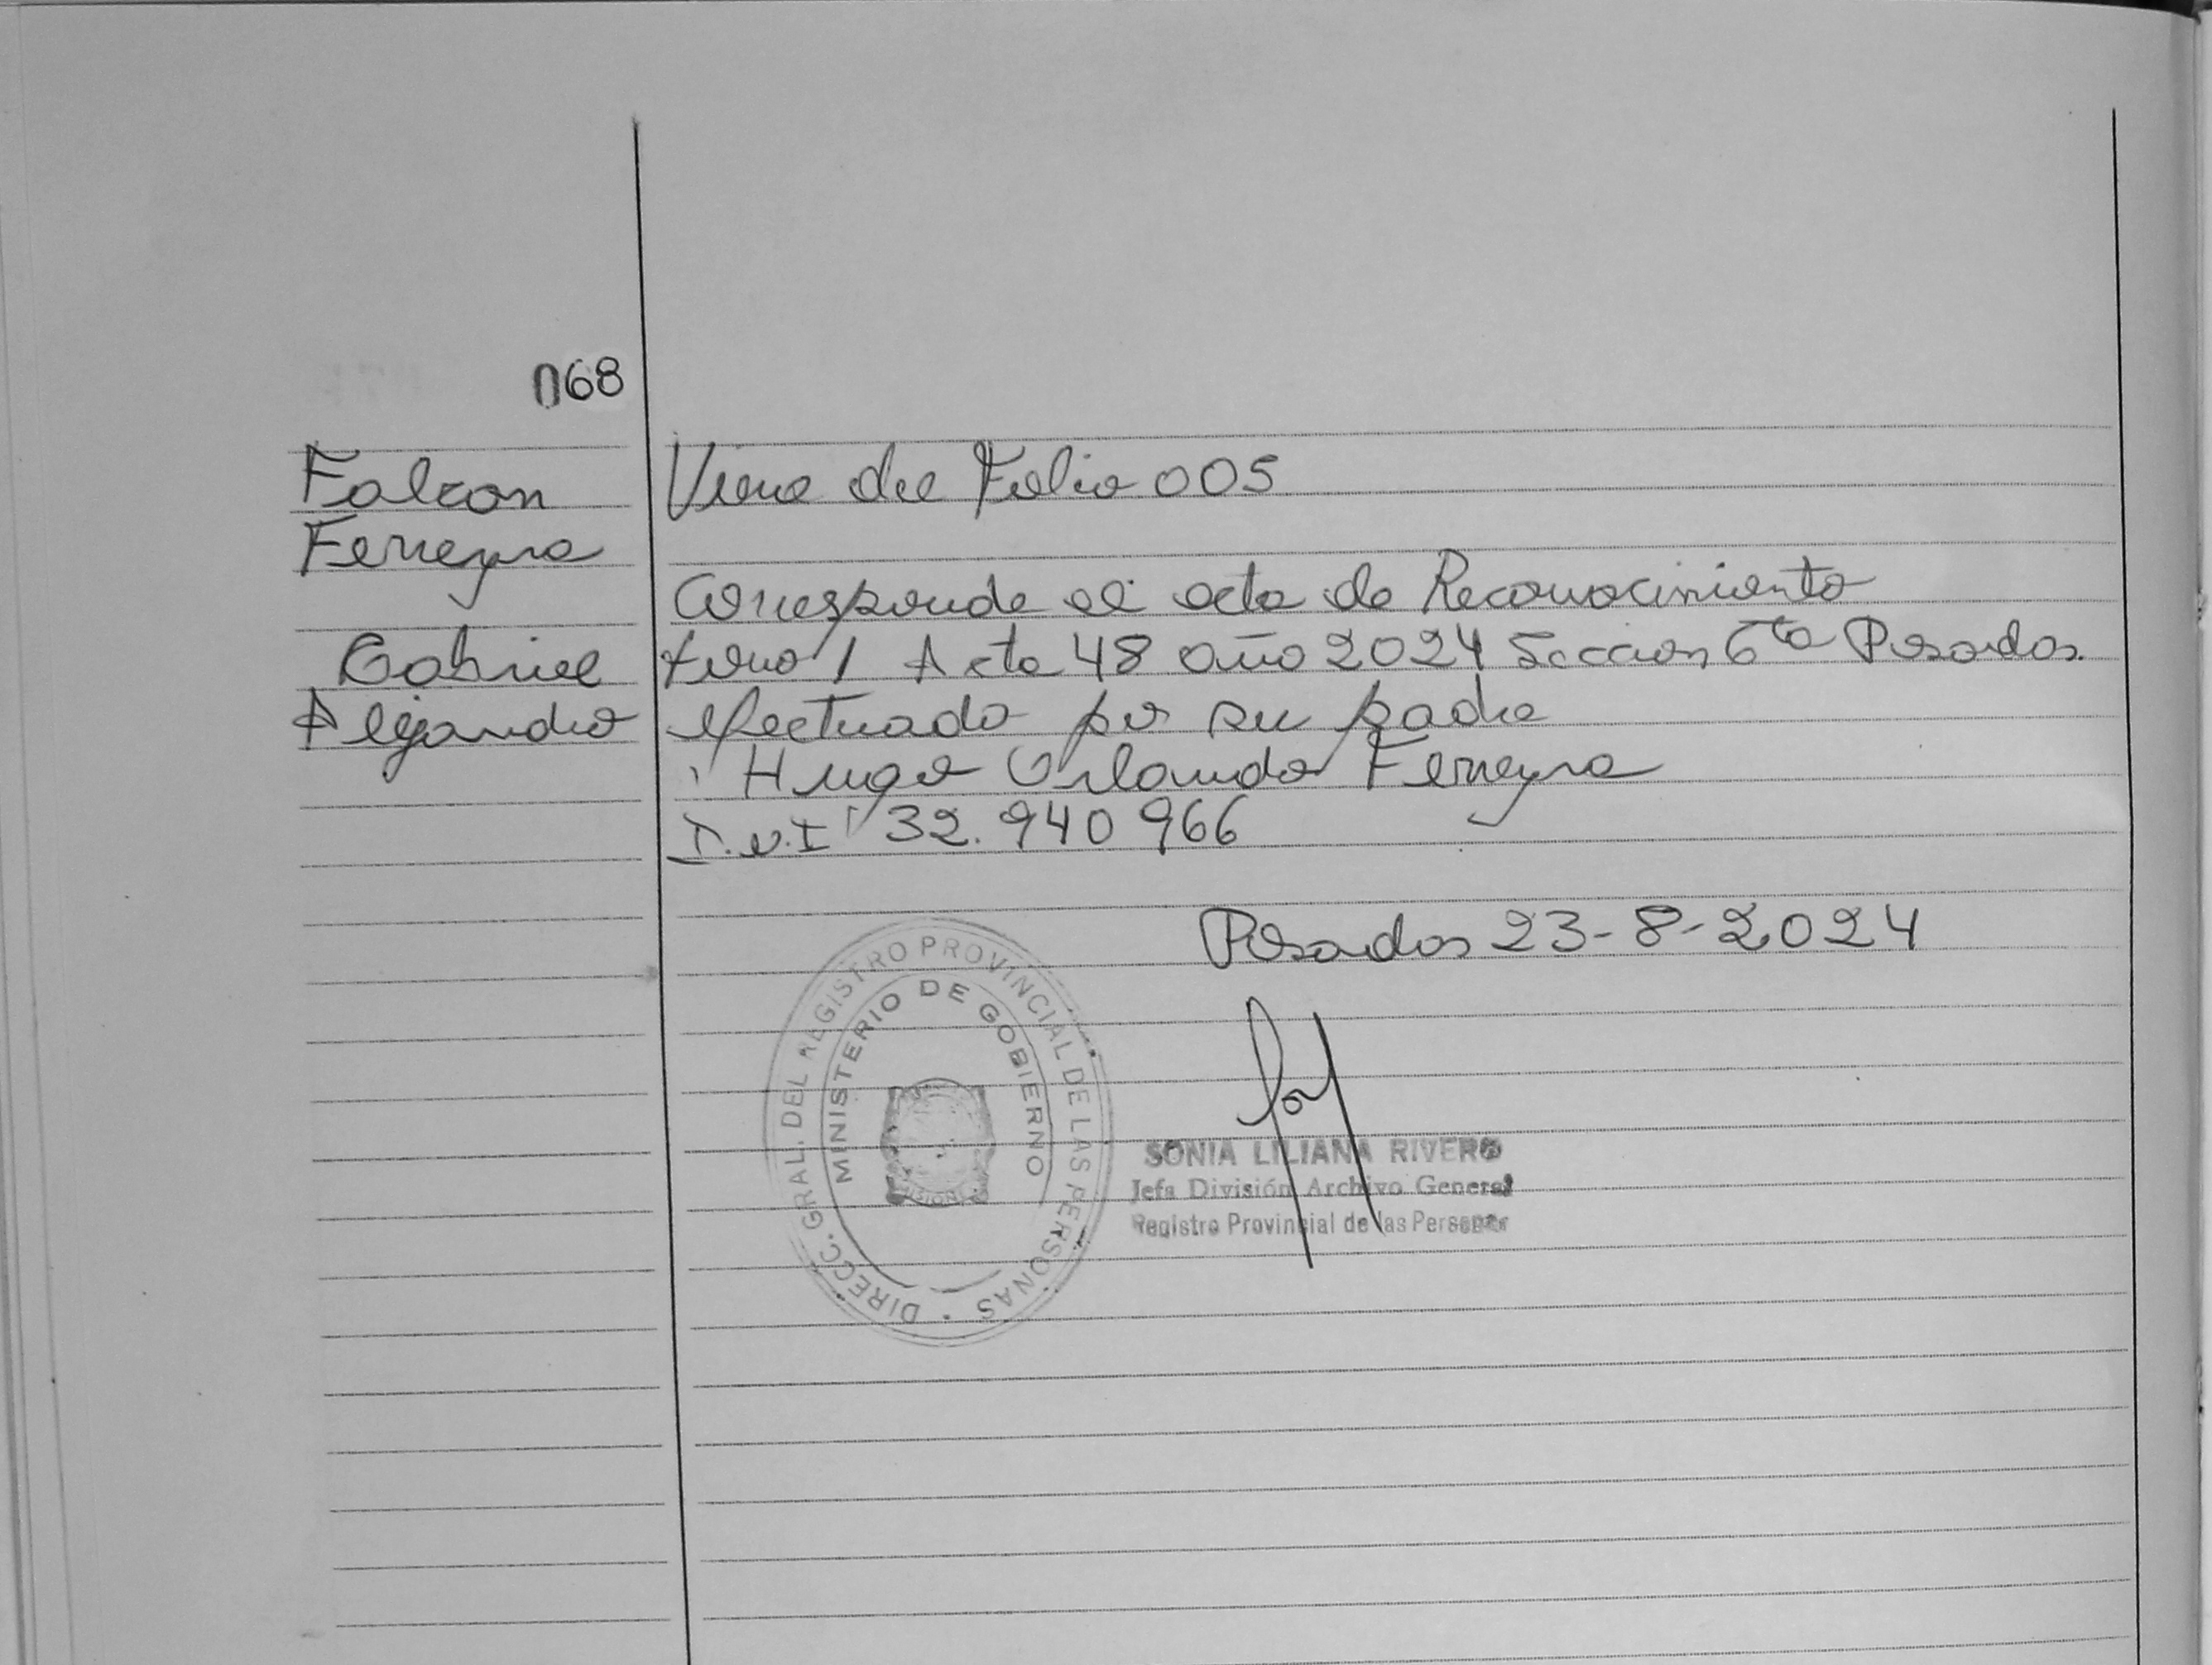 068
Falcon
Ferreyra
Gabriel
Alejandro
Viene del Folio 005
Corresponde al acta de Reconocimiento
tomo 1 Acta 48 año 2024 Seccion 6ta Posadas
efectuado por su padre
Hugo Orlando Ferreyra
D.N.I 32.940 966
Posadas 23-8-2024
DIRECC. GRAL. DEL REGISTRO PROVINCIAL DE LAS PERSONAS
MINISTERIO DE GOBIERNO
SONIA LILIANA RIVERO
Jefa División Archivo General
Registro Provincial de las Personas